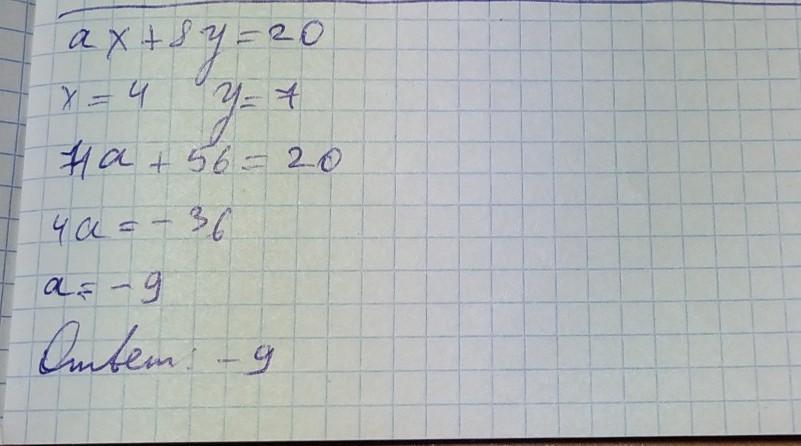 ax+8y=20
x=4 y=7
4a+56=20
4a=-36
a=-9
Ответ: -9